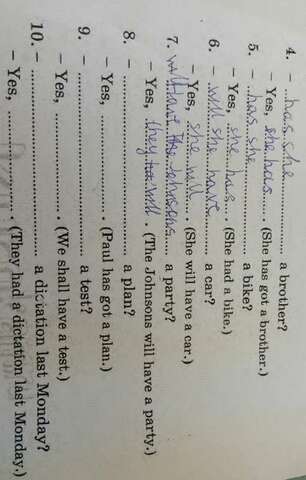 4. – has she a brother?
– Yes, she has. (She has got a brother.)
5. – has she a bike?
– Yes, she has. (She had a bike.)
6. – will she have a car?
– Yes, she will. (She will have a car.)
7. – will the Johnsons a party?
– Yes, they will. (The Johnsons will have a party.)
8. – a plan?
– Yes, . (Paul has got a plan.)
9. – a test?
– Yes, . (We shall have a test.)
10. – a dictation last Monday?
– Yes, . (They had a dictation last Monday.)